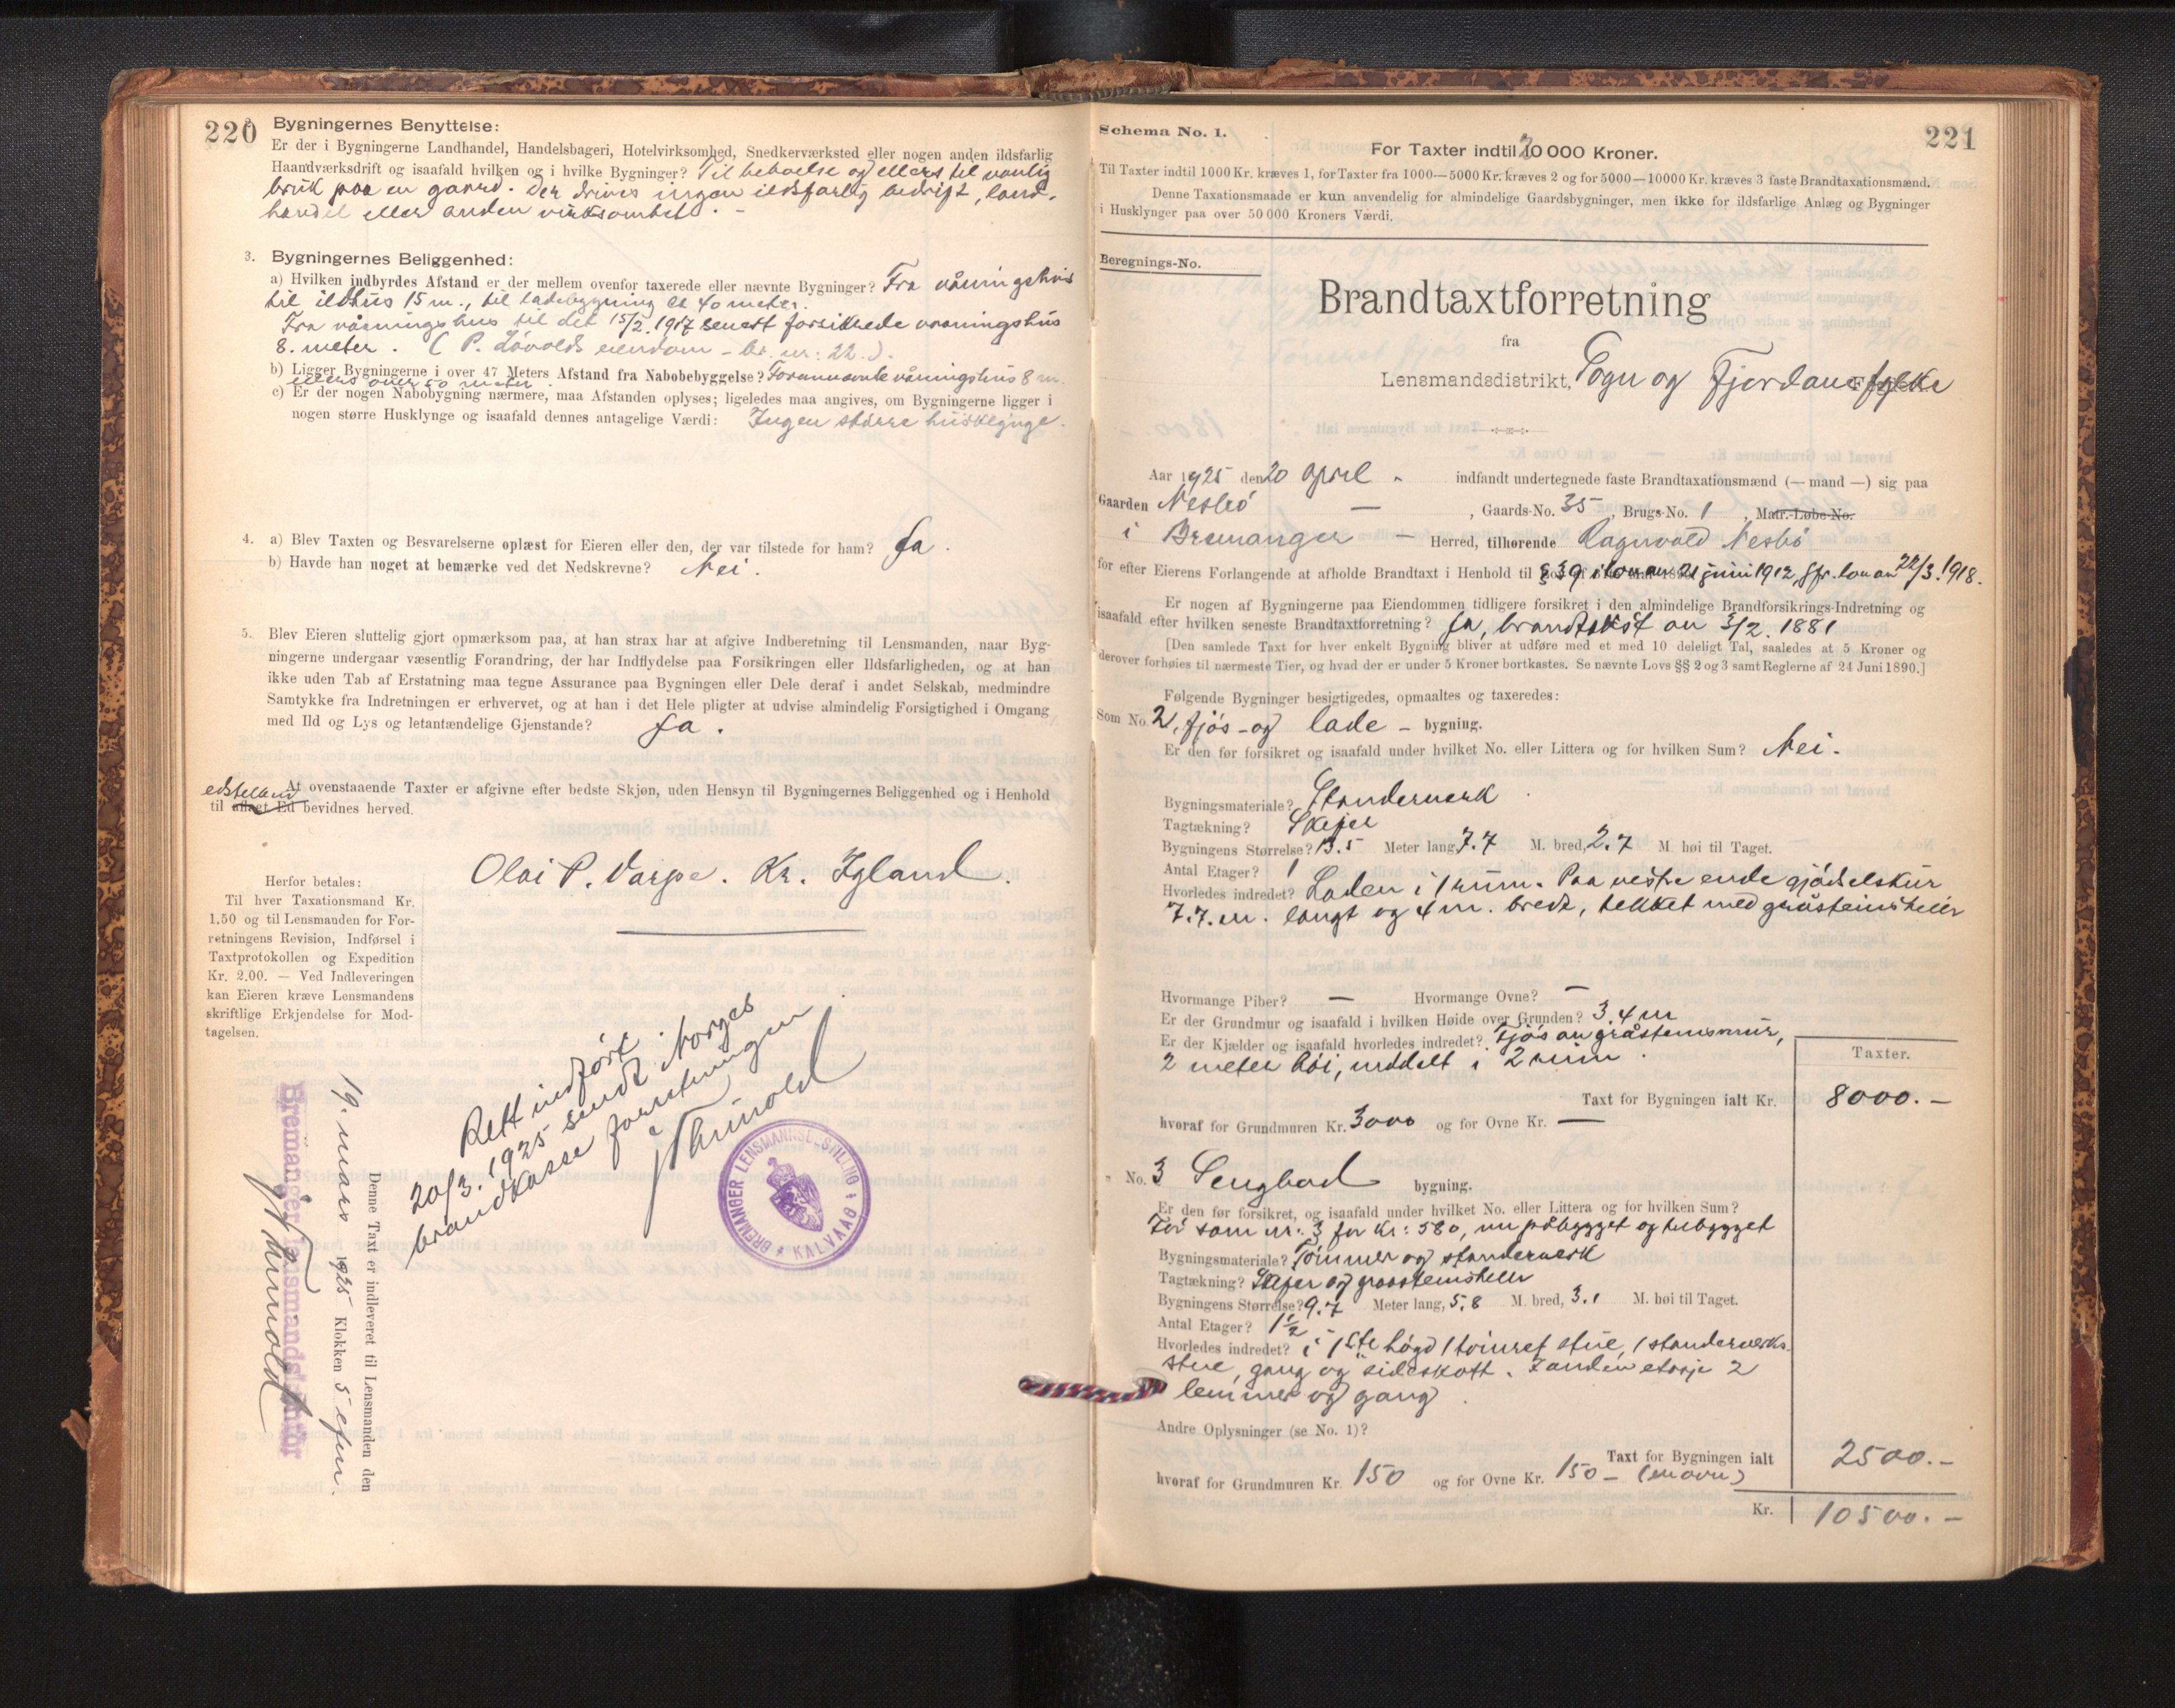 220
Bygningernes Benyttelse:
Er der i Bygningerne Landhandel, Handelsbageri, Hotelvirksomhed, Snedkerværksted eller nogen anden ildsfarlig
Haandværksdrift og isaafald hvilken og i hvilke Bygninger? Til beboelse og ellers til vanlig
bruk paa en gaard. Der drives ingen ildsfarlig bedrift, land-
handel eller anden virksomhet. -
3. Bygningernes Beliggenhed:
a) Hvilken indbyrdes Afstand er der mellem ovenfor taxerede eller nævnte Bygninger? Fra våningshus
til ildhus 15 m., til ladebygning ca 40 meter.
Fra våningshus til det 15/2. 1917 senest forsikrede vaaningshus
8. meter. ( P. Løvolds eiendom - br. nr: 22.).
b) Ligger Bygningerne i over 47 Meters Afstand fra Nabobebyggelse? Forannævnte våningshus 8 m.
ellers over 50 meter.
c) Er der nogen Nabobygning nærmere, maa Afstanden oplyses; ligeledes maa angives, om Bygningerne ligger i
nogen større Husklynge og isaafald dennes antagelige Værdi: Ingen større husklynge.
4. a) Blev Taxten og Besvarelserne oplæst for Eieren eller den, der var tilstede for ham? Ja.
b) Havde han noget at bemærke ved det Nedskrevne? Nei.
5. Blev Eieren sluttelig gjort opmærksom paa, at han strax har at afgive Indberetning til Lensmanden, naar Byg-
ningerne undergaar væsentlig Forandring, der har Indflydelse paa Forsikringen eller Ildsfarligheden, og at han
ikke uden Tab af Erstatning maa tegne Assurance paa Bygningen eller Dele deraf i andet Selskab, medmindre
Samtykke fra Indretningen er erhvervet, og at han i det Hele pligter at udvise almindelig Forsigtighed i Omgang
med Ild og Lys og letantændelige Gjenstande? Ja.
At ovenstaaende Taxter er afgivne efter bedste Skjøn, uden Hensyn til Bygningernes Beliggenhed og i Henhold
til aflagt Ed bevidnes herved.
Olai P. Varpe. Kr. Igland.
Herfor betales:
Til hver Taxationsmand Kr.
1,50 og til Lensmanden for For-
retningens Revision, Indførsel i
Taxtprotokollen og Expedition
Kr. 2.00. — Ved Indleveringen
kan Eieren kræve Lensmandens
skriftlige Erkjendelse for Mod-
tagelsen.
Denne Taxt er indleveret til Lensmanden den
19. mars 1925 Klokken 5 efm.
Bremanger lensmandskontor
Rett indført
20/3. 1925 sendt Norges
brandkasse forretningen
BREMANGER LENSMANNSBESTILLING
KALVAAG
Schema No. 1.
221
For Taxter indtil 20 000 Kroner.
Til Taxter indtil 1000 Kr. kræves 1, for Taxter fra 1000—5000 Kr. kræves 2 og for 5000—10000 Kr. kræves 3 faste Brandtaxationsmænd.
Denne Taxationsmaade er kun anvendelig for almindelige Gaardsbygninger, men ikke for ildsfarlige Anlæg og Bygninger
i Husklynger paa over 50 000 Kroners Værdi.
Beregnings-No.
Brandtaxtforretning
fra
Lensmandsdistrikt, Sogn og Fjordane fylke
Aar 1925 den 20 april - indfandt undertegnede faste Brandtaxationsmænd (— mand —) sig paa
Gaarden Nesbø — , Gaards-No. 35, Brugs-No. 1, Matr.-Løbe-No.
i Bremanger — Herred, tilhørende Ragnvald Nesbø
for efter Eierens Forlangende at afholde Brandtaxt i Henhold til § 39 i lov av 21 juni 1912, jfr. lov av 22/3. 1918.
Er nogen af Bygningerne paa Eiendommen tidligere forsikret i den almindelige Brandforsikrings-Indretning og
isaafald efter hvilken seneste Brandtaxtforretning? Ja, brandtakst av 3/2. 1881
[Den samlede Taxt for hver enkelt Bygning bliver at udføre med et med 10 deleligt Tal, saaledes at 5 Kroner og
derover forhøies til nærmeste Tier, og hvad der er under 5 Kroner bortkastes. Se nævnte Lovs §§ 2 og 3 samt Reglerne af 24 Juni 1890.]
Følgende Bygninger besigtigedes, opmaaltes og taxeredes:
Som No. 2, fjøs- og lade - bygning.
Er den før forsikret og isaafald under hvilket No. eller Littera og for hvilken Sum? Nei.
Bygningsmateriale? Standerverk
Tagtækning? Skifer
Bygningens Størrelse? 13.5 Meter lang, 7.7 M. bred, 2.7 M. høi til Taget.
Antal Etager? 1
Hvorledes indredet? Laden i 1 rum. Paa vestre ende gjødselskur
7.7. m. langt og 4 m. bredt, tekket med gråsteinsheller
Hvormange Piber? — Hvormange Ovne? —
Er der Grundmur og isaafald i hvilken Høide over Grunden? 3,4 m
Er der Kjælder og isaafald hvorledes indredet? Fjøs av gråstensmur,
2 meter høi, inddelt i 2 rum.
Taxter.
Taxt for Bygningen ialt Kr. 8000.-
hvoraf for Grundmuren Kr. 3000 og for Ovne Kr. —
" No. 3 Sengbod bygning.
Er den før forsikret, og isaafald under hvilket No. eller Littera og for hvilken Sum?
Før som nr: 3 for kr: 580, nu påbygget og tilbygget
Bygningsmateriale? Tømmer og standerverk
Tagtækning? Skifer og graasteinsheller
Bygningens Størrelse? 9.7 Meter lang, 5.8 M. bred, 3.1 M. høi til Taget.
Antal Etager? 1 1/2
Hvorledes indredet? i 1ste høgd 1 tømret stue, 1 standerverks
stue, gang og sideskott. I anden etasje 2
lemmer og gang.
Andre Oplysninger (se No. 1)?
Taxt for Bygningen ialt 2500.-
hvoraf for Grundmuren Kr. 150 og for Ovne Kr. 150 - (en ovn)
Kr. 10500.-